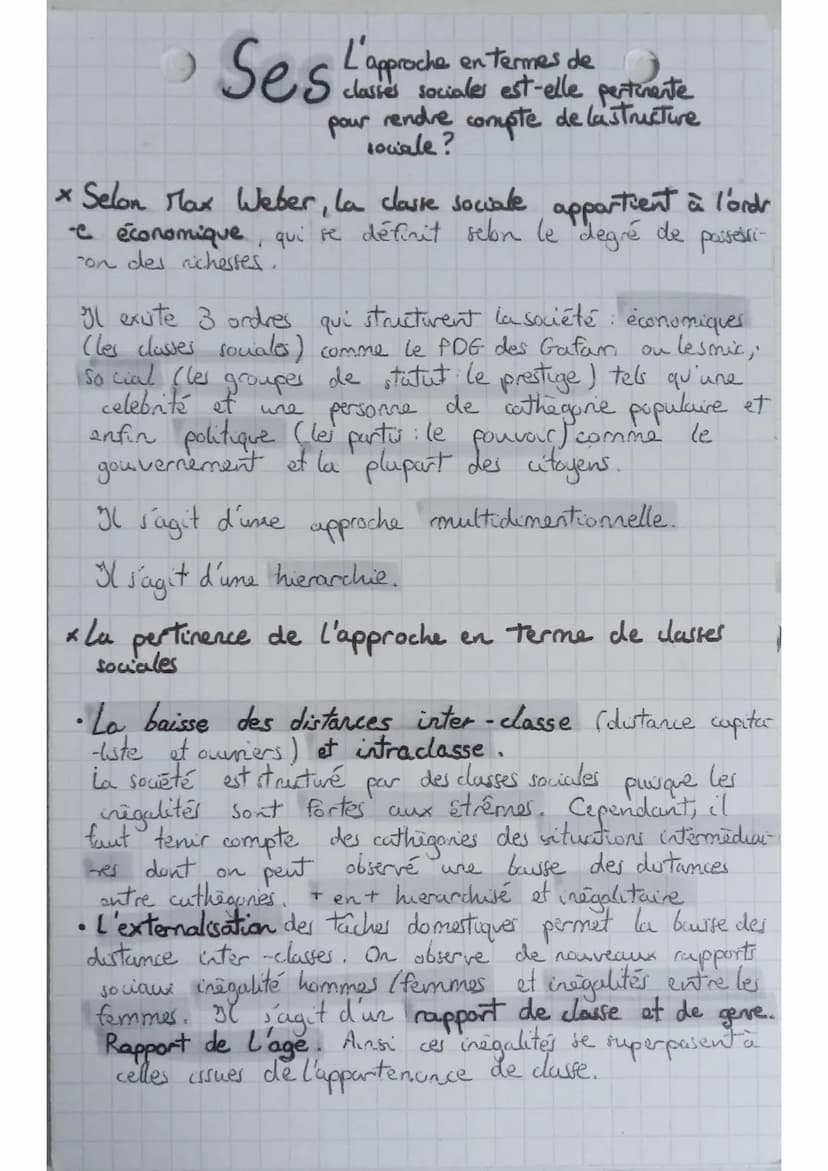 Ses
L'approche en termes de
classes sociales est-elle pertinente
pour rendre compte de la structure
sociale ?
x Selon Max Weber, la classe sociale appartient à l'ordr
-e économique, qui se définit selon le degré de possessi-
-on des richesses.
Il existe 3 ordres qui structurent la société : économiques
(les classes sociales) comme le PDG des Gafam ou
social (les groupes de statut : le prestige) tels qu'une
celebrité et une personne de cathégorie populaire et
enfin politique (les partis : le pouvoir) comme le
gouvernement et la plupart des citoyens.
Il s'agit d'une approche multidimentionnelle.
Il s'agit d'une hierarchie.
x La pertinence de l'approche en terme de classes
sociales
• La baisse des distances inter-classe (distance capita-
-liste et ouvriers) et intraclasse.
La société est structuré par des classes sociales puisque les
inégalités sont fortes aux extrêmes. Cependant, il
faut tenir compte des cathégories des situations intermédiai-
-res dont on peut observé une baisse des distances
entre cathégories. + en + hierarchisé et inégalitaire
• L'externalisation des tâches domestiques permet la baisse des
distance inter-classes. On observe de nouveaux rapports
sociaux inégalité hommes/femmes et inégalités entre les
femmes. Il s'agit d'un rapport de classe et de genre.
Rapport de l'age. Ainsi ces inégalités se superposent à
celles issues de l'appartenance de classe.